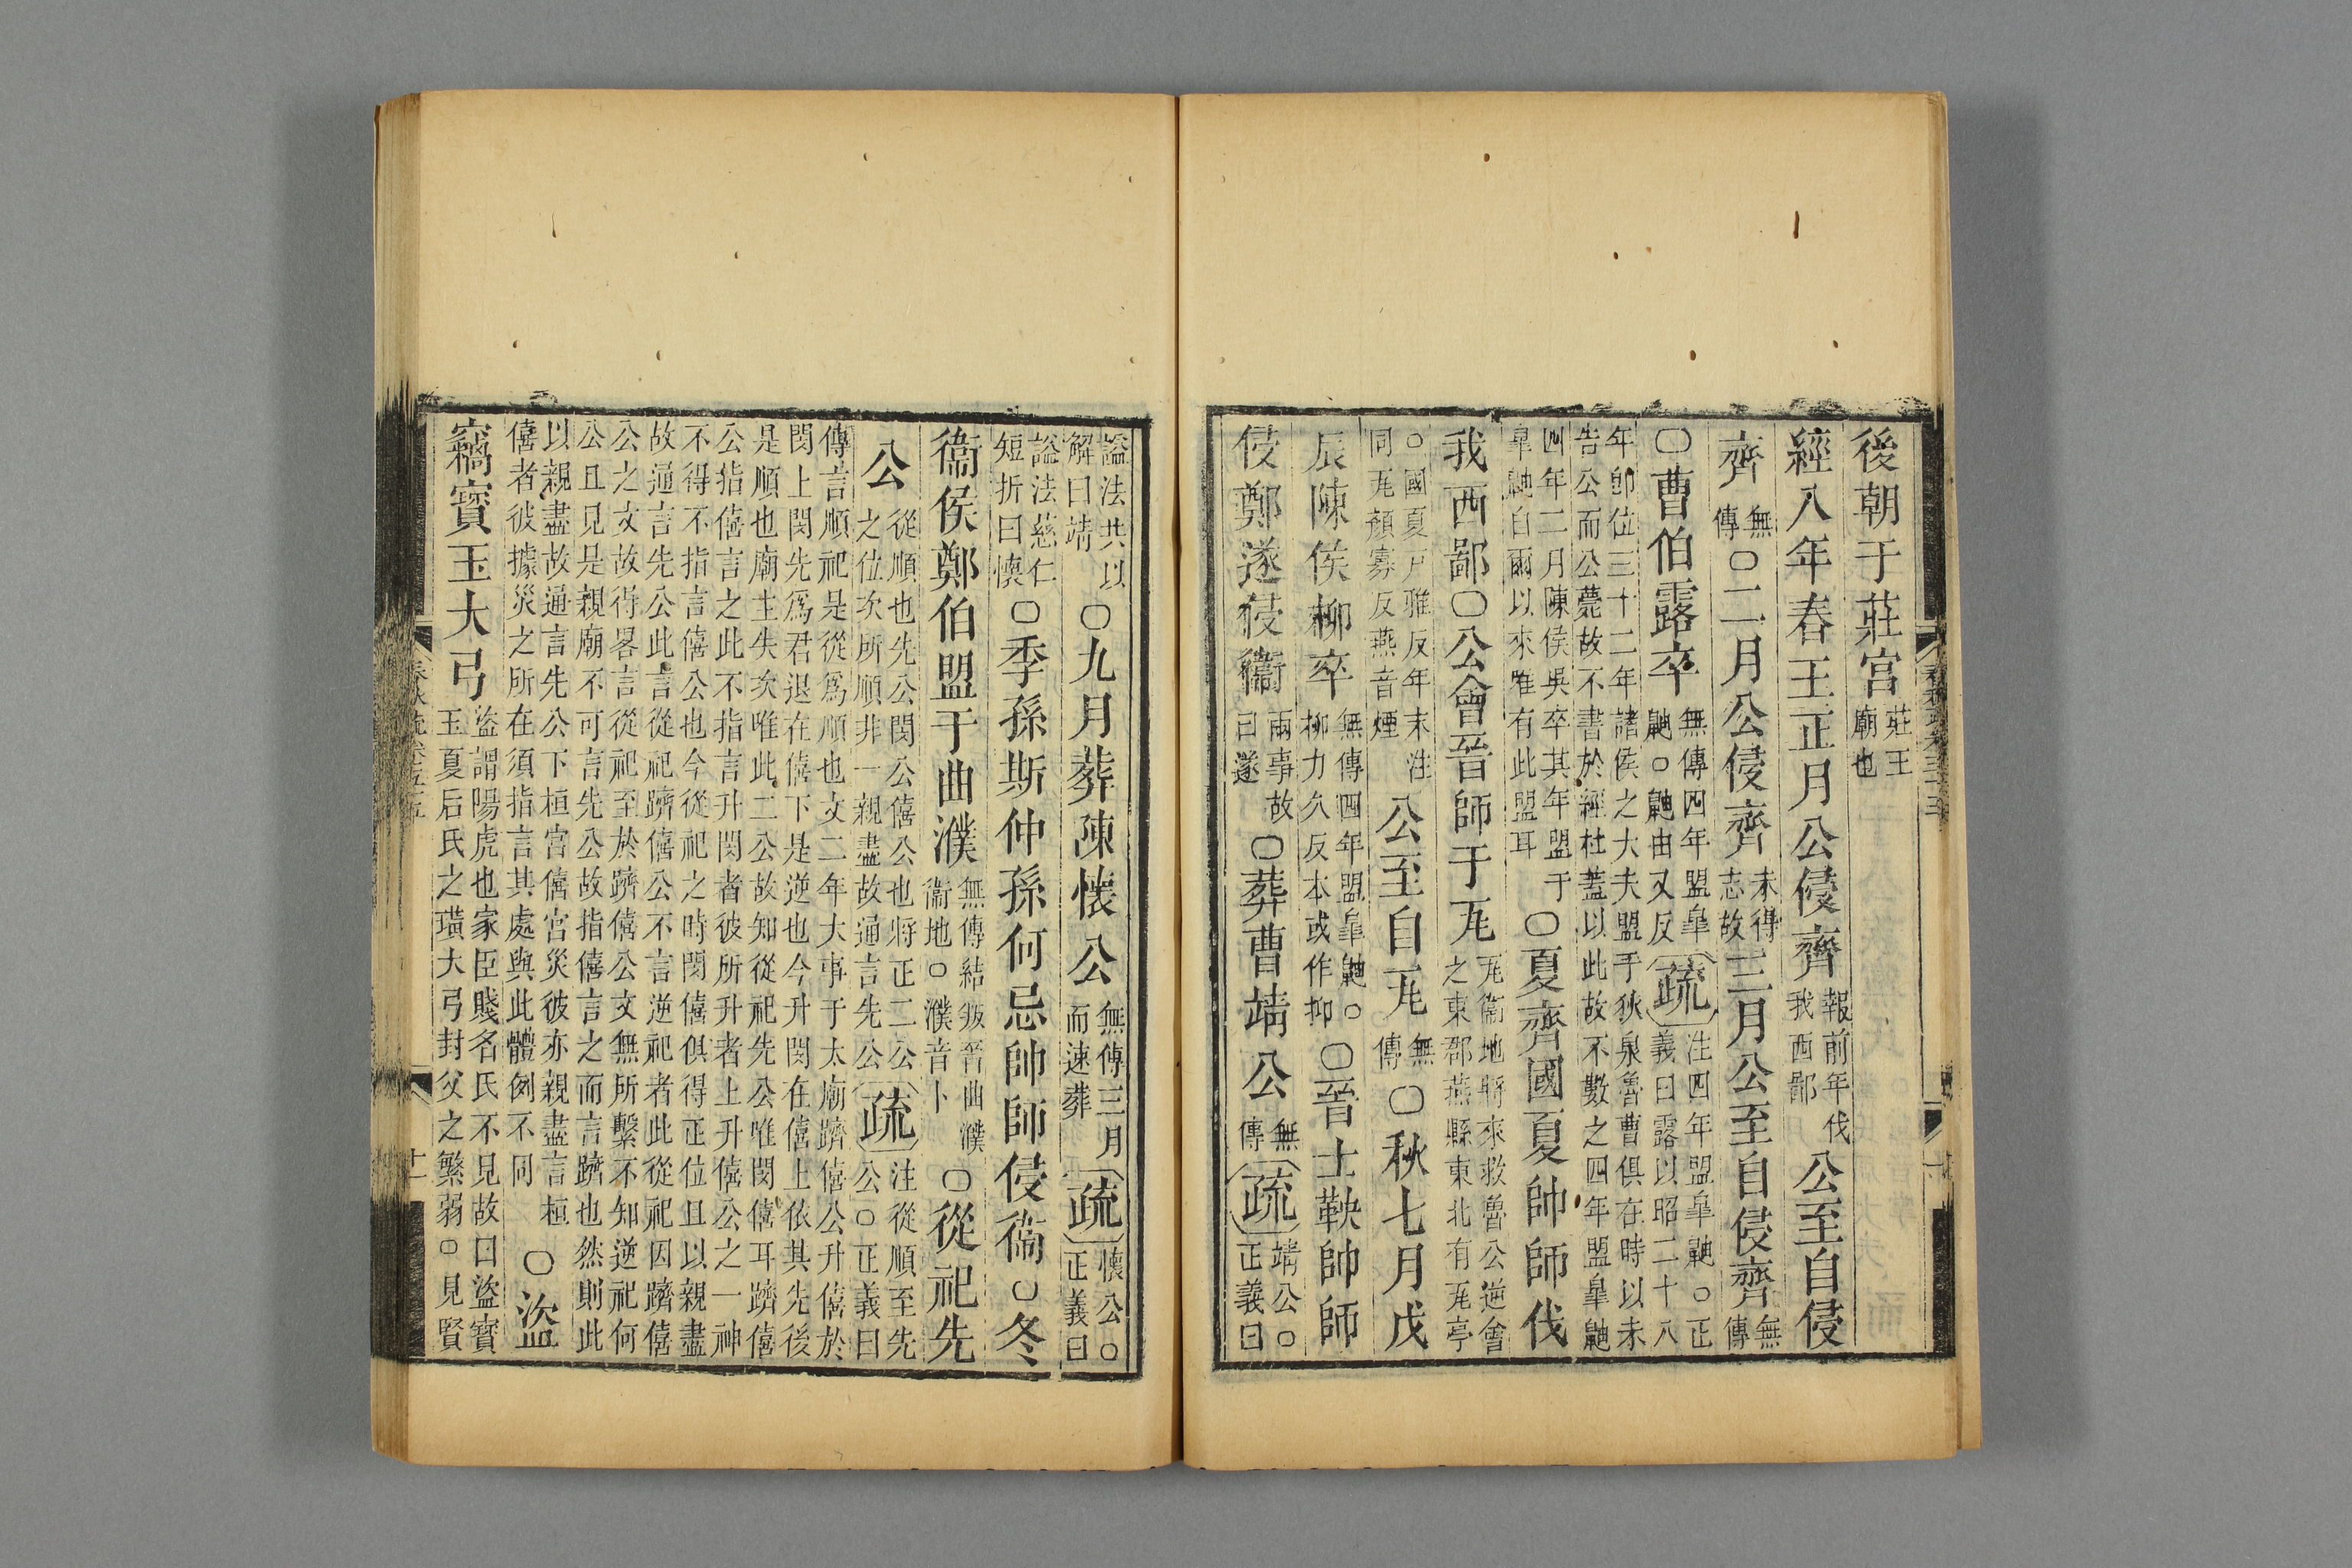 後朝于莊宮莊王廟也
經八年春王正月公侵齊報前年伐我西鄙公至自侵
齊無傳○二月公侵齊未得志故三月公至自侵齊無傳
○曹伯露卒無傳四年盟皐鼬○鼬由又反疏注四年盟皐鼬○正義曰露以昭二十八
年卽位三十二年諸侯之大夫盟于狄泉魯曹俱在時以未
告公而公薨故不書於經杜蓋以此故不數之四年盟皐鼬
四年二月陳侯吳卒其年盟于皐鼬自爾以來唯有此盟耳○夏齊國夏帥師伐
我西鄙○公會晉師于瓦瓦衞地將來救魯公逆會之東郡燕縣東北有瓦亭
○國夏戸雅反年末注同瓦顏寡反燕音煙公至自瓦無傳○秋七月戊
辰陳侯柳卒無傳四年盟皐鼬○柳力久反本或作抑○晉士鞅帥師
侵鄭遂侵衞兩事故曰遂○葬曹靖公無傳疏靖公○正義曰
謚法共以解曰靖○九月葬陳懷公無傳三月而速葬疏懷公○正義曰
謚法慈仁短折曰懷○季孫斯仲孫何忌帥師侵衞○冬
衞侯鄭伯盟于曲濮無傳結叛晉曲濮衞地○濮音卜○從祀先
公從順也先公閔公僖公也將正二公之位次所順非一親盡故通言先公疏注從順至先公○正義曰
傳言順祀是從爲順也文二年大事于太廟躋僖公升僖於
閔上閔先爲君退在僖下是逆也今升閔在僖上依其先後
是順也廟主失次唯此二公故知從祀先公唯閔僖耳躋僖
公指僖言之此不指言升閔者彼所升者上升僖公之一神
不得不指言僖公也今從祀之時閔僖俱得正位且以親盡
故通言先公此言從祀躋僖公不言逆祀者此從祀因躋僖
公之文故得畧言從祀至於躋僖公文無所繫不知逆祀何
公且見是親廟不可言先公故指僖言之而言躋也然則此
以親盡故通言先公下桓宮僖宮災彼亦親盡言桓
僖者彼據災之所在須指言其處與此體例不同○盜
竊寶玉大弓盜謂陽虎也家臣賤名氏不見故曰盜寶玉夏后氏之璜大弓封父之繁弱○見賢
春秋疏卷五十五
十一